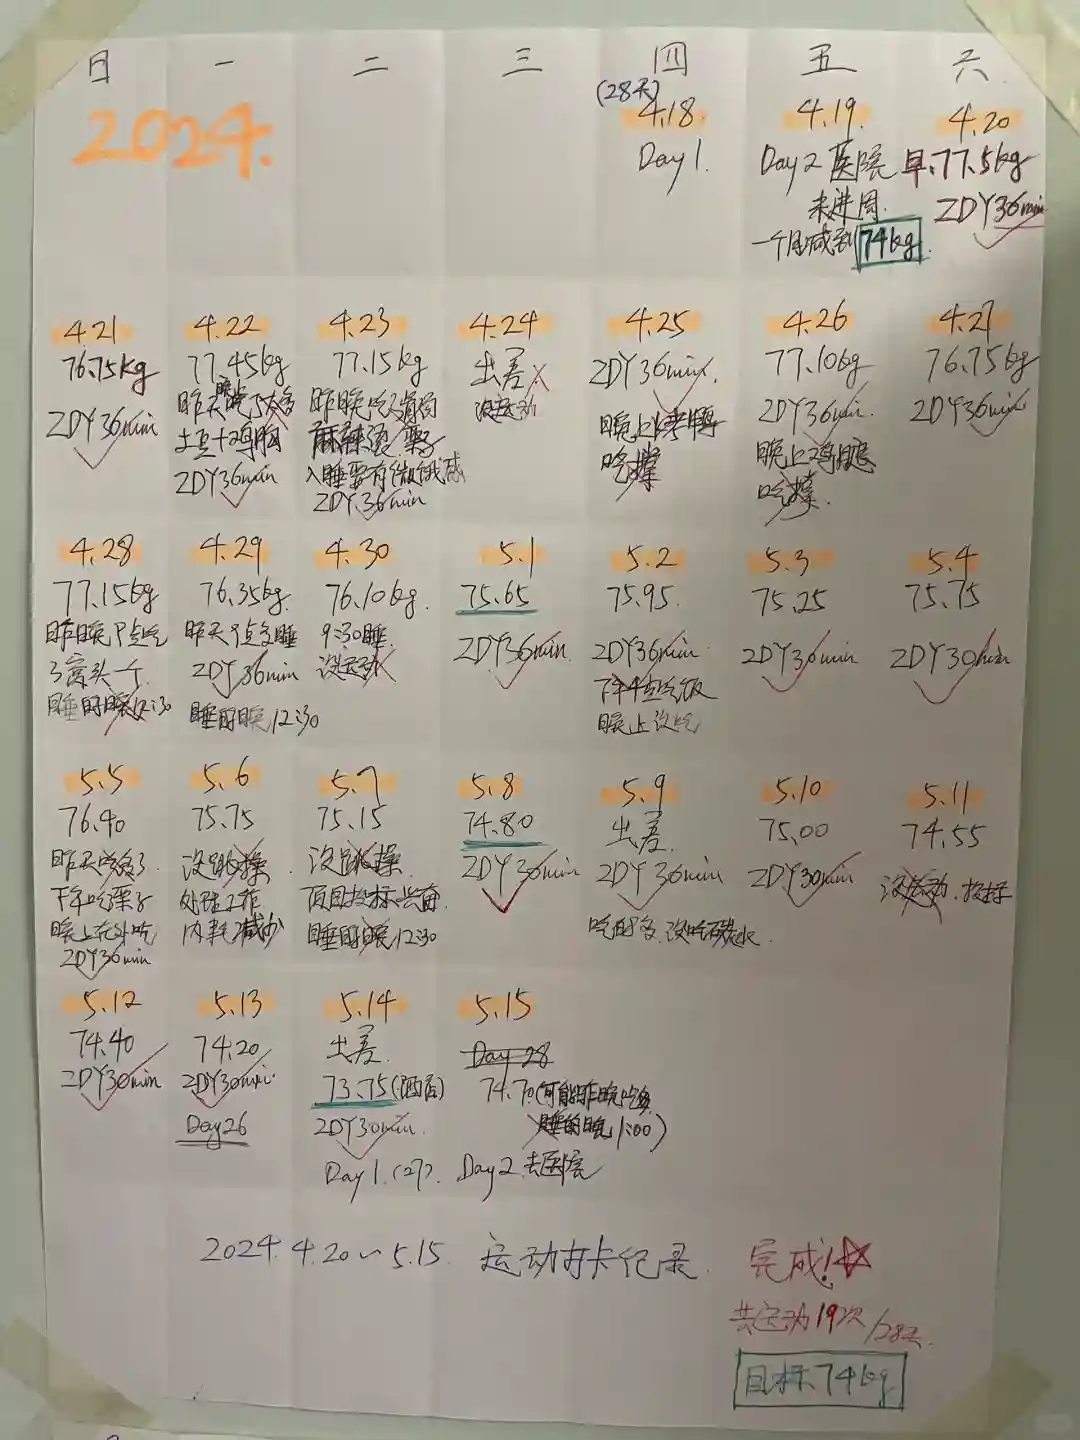 日 一 二 三 四 五 六
2024.
(28天)
4.18
Day 1.
4.19.
Day 2 医院
来进周.
一个月减到74kg.
4.20
早.77.5kg
ZDY36min
4.21
76.75kg
ZDY36min
4.22
77.45kg
昨天晚吃了太多
土豆+鸡胸
ZDY36min
4.23
77.15kg
昨晚吃了
麻辣烫.
入睡要有微饿感
ZDY.36min
4.24
出差
没运动
4.25
ZDY36min.
晚上烤鸭
吃撑
4.26
77.10kg
ZDY36min.
晚上鸡腿
吃撑.
4.27
76.75kg
ZDY36min
4.28
77.15kg
昨晚8点吃
了窝头一个.
睡时晚12:30
4.29
76.35kg.
昨天9点多睡
ZDY36min
睡时晚12:30
4.30
76.10kg.
9:30睡.
没运动
5.1
75.65
ZDY36min.
5.2
75.95.
ZDY36min.
下午4点吃饭
晚上没吃
5.3
75.25
ZDY30min
5.4
75.75
ZDY30min
5.5
76.40
昨天吃多了.
下午吃栗子
晚上在外吃
ZDY36min
5.6
75.75
没跳操.
处理工作
内耗减少
5.7
75.15
没跳操.
项目投标兴奋.
睡时晚12:30
5.8
74.80
ZDY36min
5.9
出差.
ZDY36min
吃的多.没吃碳水.
5.10
75.00
ZDY30min
5.11
74.55
没运动.投标
5.12
74.40
ZDY30min
5.13
74.20
ZDY30min.
Day26
5.14
出差.
73.75(酒店)
ZDY30min.
Day1.(27).
5.15
Day 28
74.70(可能昨晚吃多
睡的晚1:00)
Day2.去医院
2024.4.20~5.15.运动打卡记录.
完成!☆
共运动19次/28天.
目标74kg